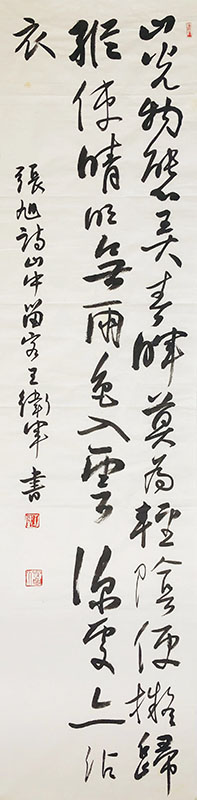 山光物態弄春暉莫為輕陰便擬歸
縱使晴明無雨色入雲深處亦沾
衣
張旭詩山中留客王衛軍書